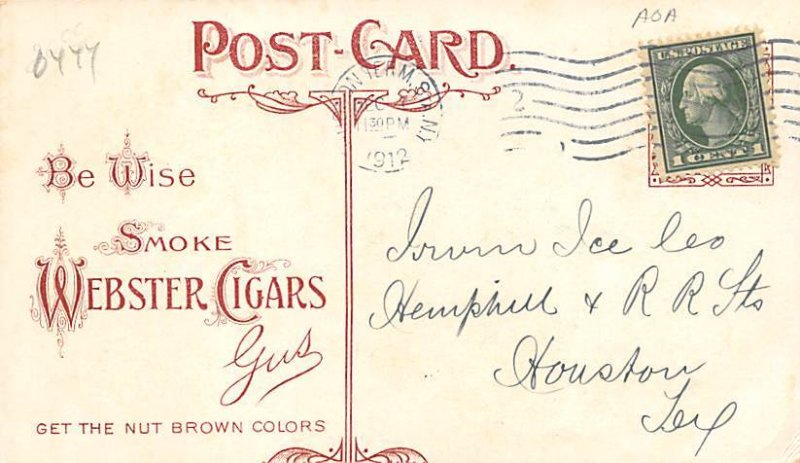 AOA
POST-CARD.
U.S. POSTAGE
1 CENT 1
TERM. STA. N.Y.
30 PM
1912
2
Be Wise
Smoke
Webster Cigars
Gus
GET THE NUT BROWN COLORS
Irwin Ice Co
Hemphill & R R Sts
Houston
Tex